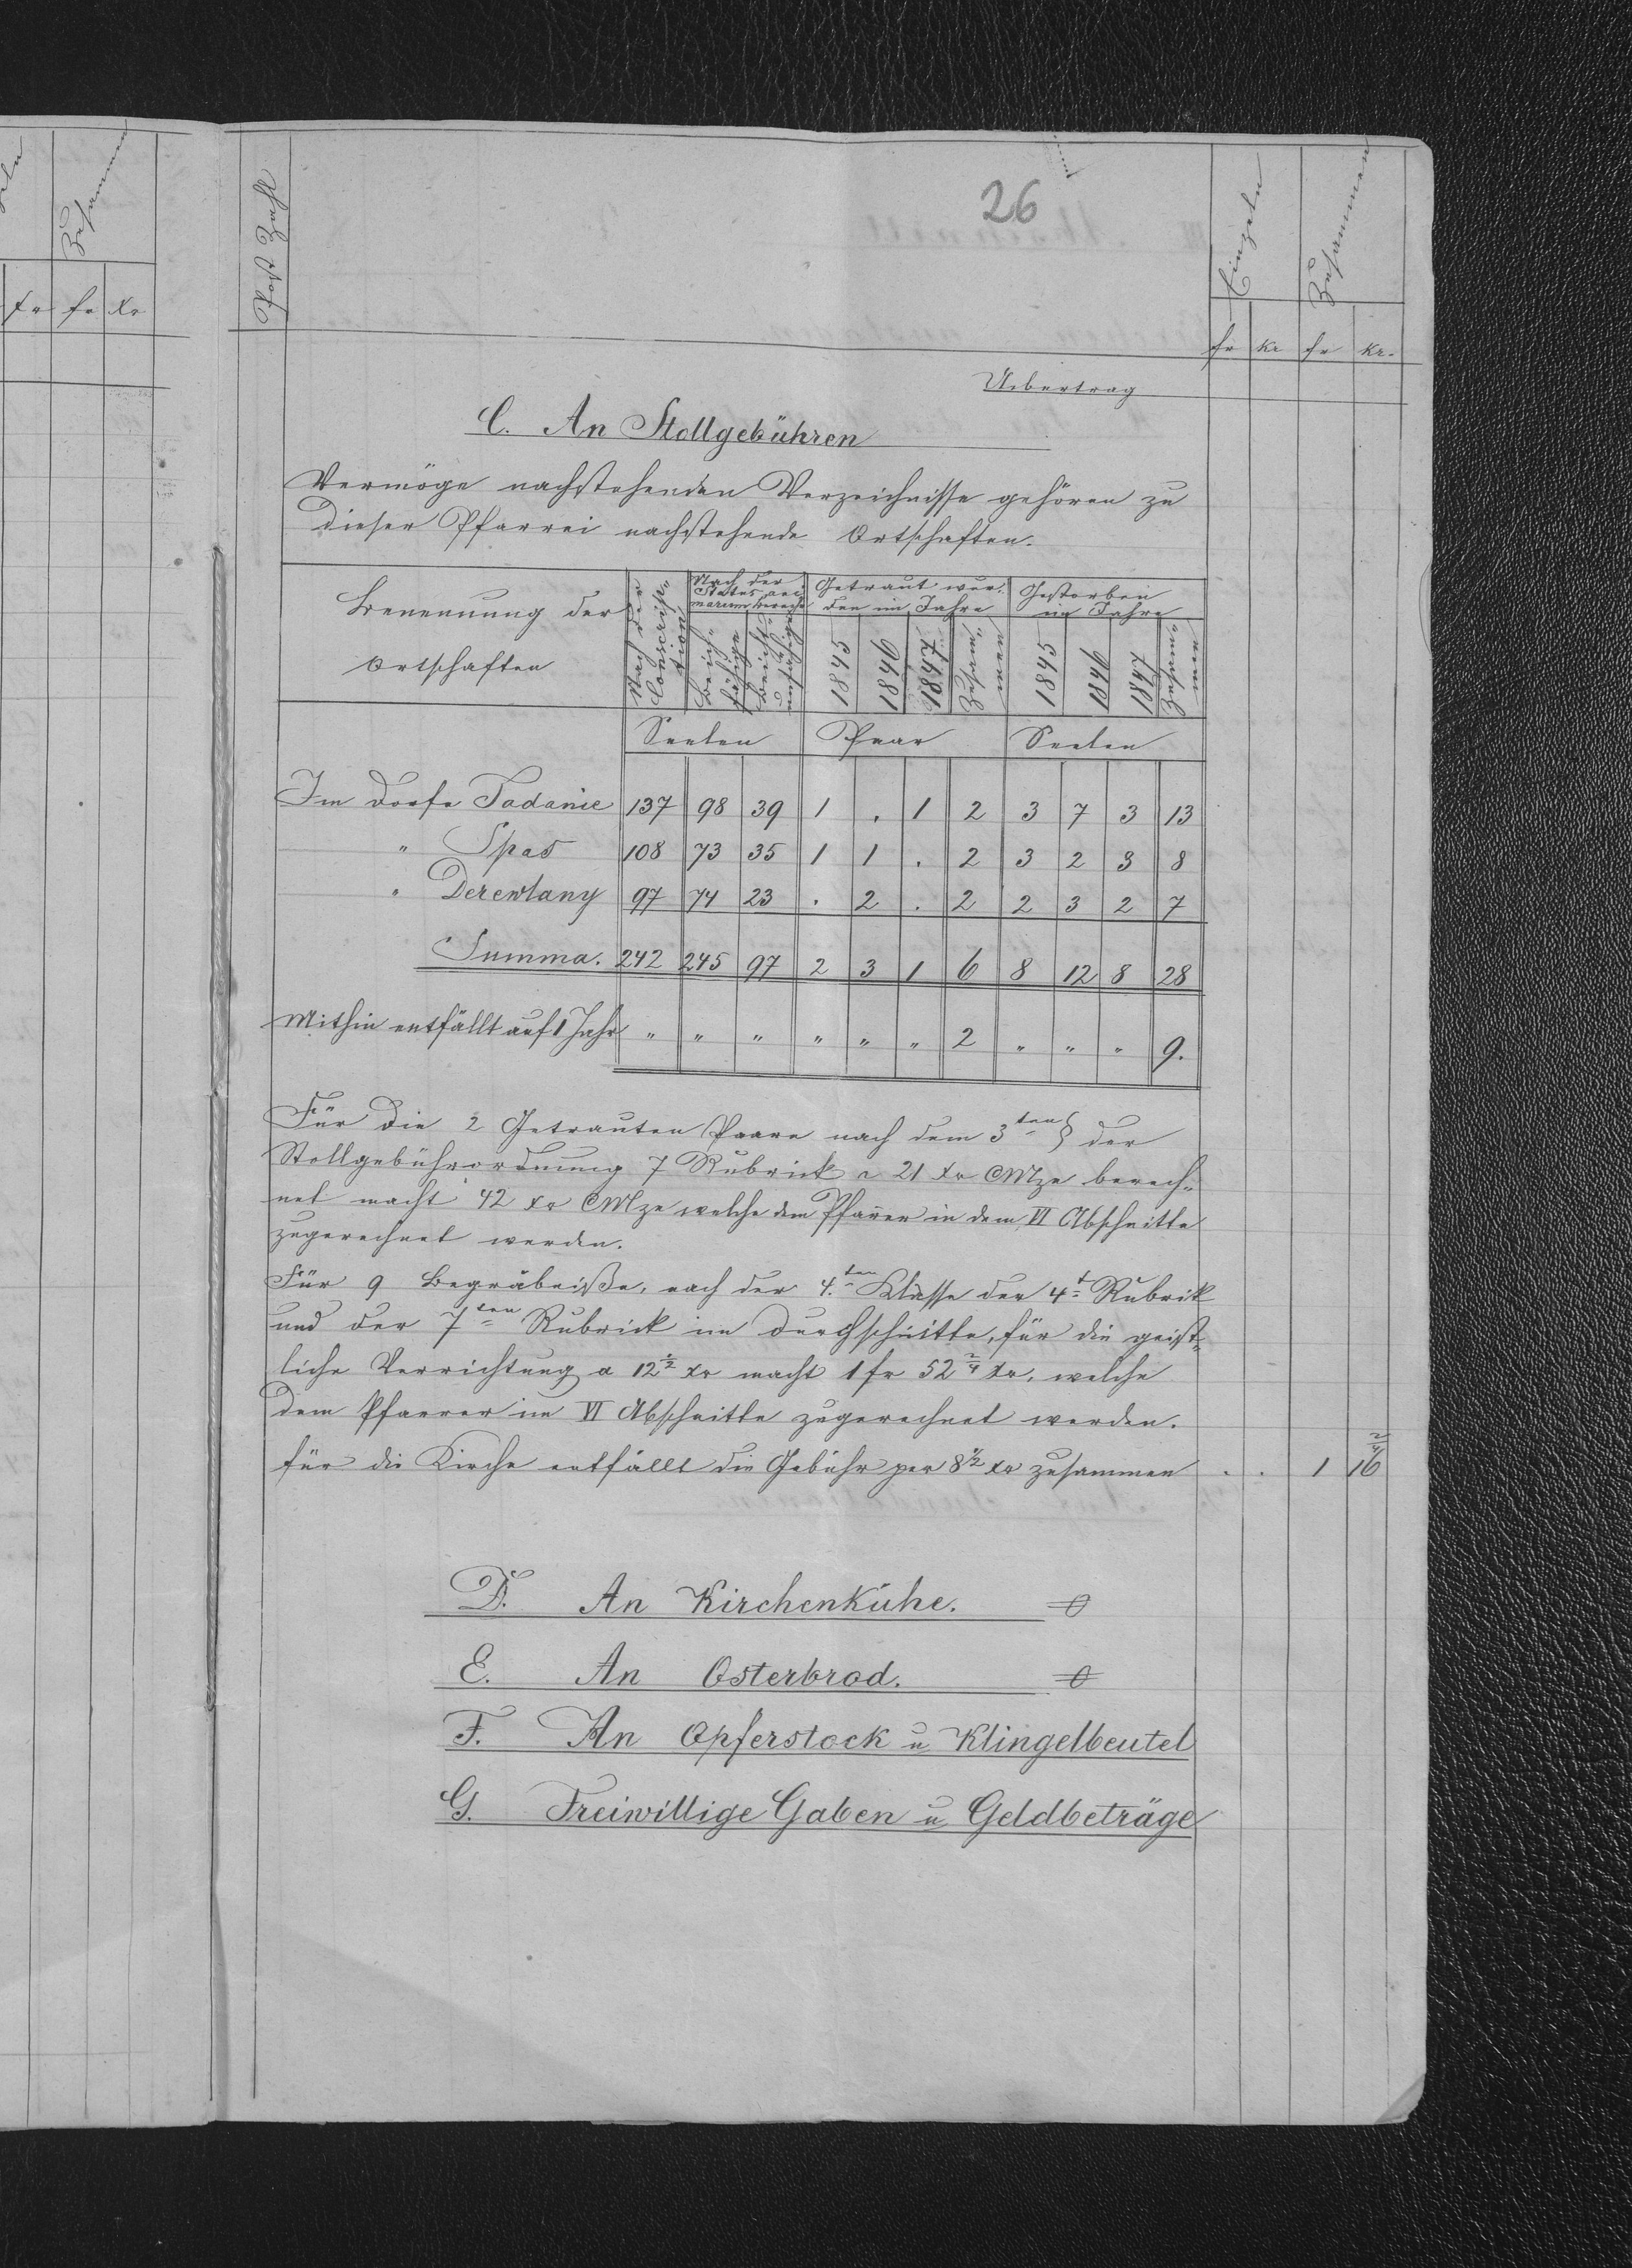 Zusammen
xr fr xr
26
Post Zahl
Einzeln
Zusammen
fr kr fr kr.
Uibertrag
C. An Stollgebühren
Vermöge nachstehenden Verzeichnisse gehören zu
dieser Pfarrei nachstehende Ortschaften.
Benennung der Ortschaften
Nach der Conscription
Nach der Status animarum berech
Beichtfähige
Beicht unfähige
Getraut wurden im Jahre
1845 1846 1847 Zusammen
Gestorben im Jahre
1845 1846 1847 Zusammen
Seelen Paar Seelen
Im Dorfe Tadanie 137 98 39 1 . 1 2 3 7 3 13
" Spas 108 73 35 1 1 . 2 3 2 3 8
" Derewlany 97 74 23 . 2 . 2 2 3 2 7
Summa. 242 245 97 2 3 1 6 8 12 8 28
Mithin entfällt auf 1 Jahr " " " " " " 2 " " " 9.
Für die 2 Getrauten Paare nach dem 3ten § der
Stollgebührordnung 7 Rubrick a 21 xr CMze berech-
net macht 42 xr CMze welche dem Pfarrer in dem VI Abschnitte
zugerechnet werden.
Für 9 Begräbniße, nach der 4.ten Klasse der 4t Rubrik
und der 7ten Rubrick im Durchschnitte, für die geist-
liche Verrichtung a 12 1/2 xr macht 1 fr 52 2/4 xr, welche
dem Pfarrer im VI Abschnitte zugerechnet werden.
für die Kirche entfällt die Gebühr per 8 1/2 xr zusammen . . 1 16 2/4
D. An Kirchenkühe. 0
E. An Osterbrod. 0
F. An Opferstock u Klingelbeutel
G. Freiwillige Gaben u Geldbeträge